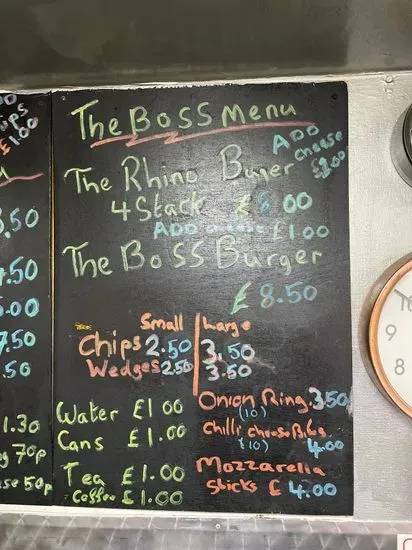 The BOSS Menu
ADD cheese £1.00
The Rhino Burger
4 Stack £8.00
ADD cheese £1.00
The BoSS Burger
£8.50
Small Large
Chips 2.50 3.50
Wedges 2.50 3.50
Water £1.00
Cans £1.00
Tea £1.00
Coffee £1.00
Onion Ring 3.50
(10)
Chilli Cheese Bites
(10) 4.00
Mozzarella
Sticks £4.00
£1.00
3.50
4.50
5.00
7.50
.50
1.30
70p
50p
10
9
8